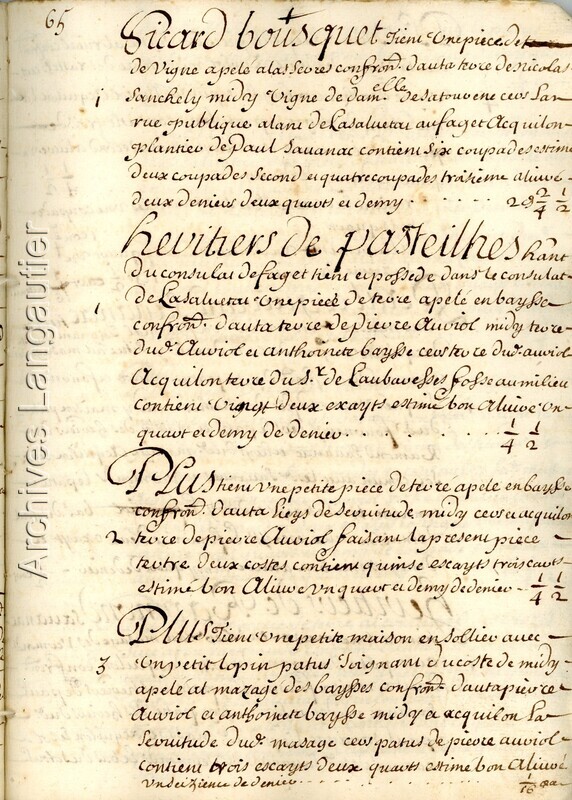 65
Sicard bousquet Tient Une piece de
de Vigne apelé a las Serres confrond. d'auta terre de nicolas
1 Sanchely midy Vigne de dam.elle de Latourene cers La
rue publique alant de Lasalvetat au faget Acquilon
plantier de Paul Savanac contient Six coupades estimé
deux coupades Second et quatre coupades troisieme alivré
deux deniers deux quarts et demy . . . . 2 d 2/4 1/2
heritiers de pasteilhes hānt
Du consulat de faget tient et possede dans le consulat
1 de Lasalvetat Une piece de terre apelé en baysse
confrond. d'auta terre de pierre Auriol midy terre
dud. Auriol et anthoinete baysse cers terre dud. auriol
Acquilon terre du S.r de Laubaresses fosse au milieu
contient Vingt deux exayts estimé bon Alivré Un
quart et demy de denier . . . . 1/4 1/2
PLus tient Une petite piece de terre apelé en baysse
confrond. d'auta Lieys de Servitude midy cers et acquilon
2 terre de pierre Auriol faisant la present piece
tertre deux costes contient quinse escayts trois carts
estimé bon Alivré Un quart et demy de denier - 1/4 1/2
PLus Tient Une petite maison en sollier avec
3 Un petit lopin patus Joignant du costé de midy
apelé al mazage des baysses confrond. d'auta pierre
Auriol et anthoinete baysse midy et acquilon La
Servitude dud. masage cers patus de pierre auriol
contient trois escayts deux quarts estimé bon Alivré
Un deizience de denier . . . . 1/16
Archives Langautier